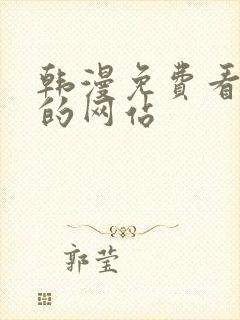 韩漫免费看
的网站
郭莹